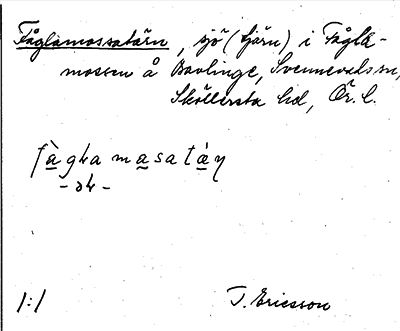 Fåglamossatärn, sjö (tjärn) i Fågla-
mossen å Bavlinge, Svennevads sn,
Sköllersta hd, Ör. l.
1:1
T. Ericsson